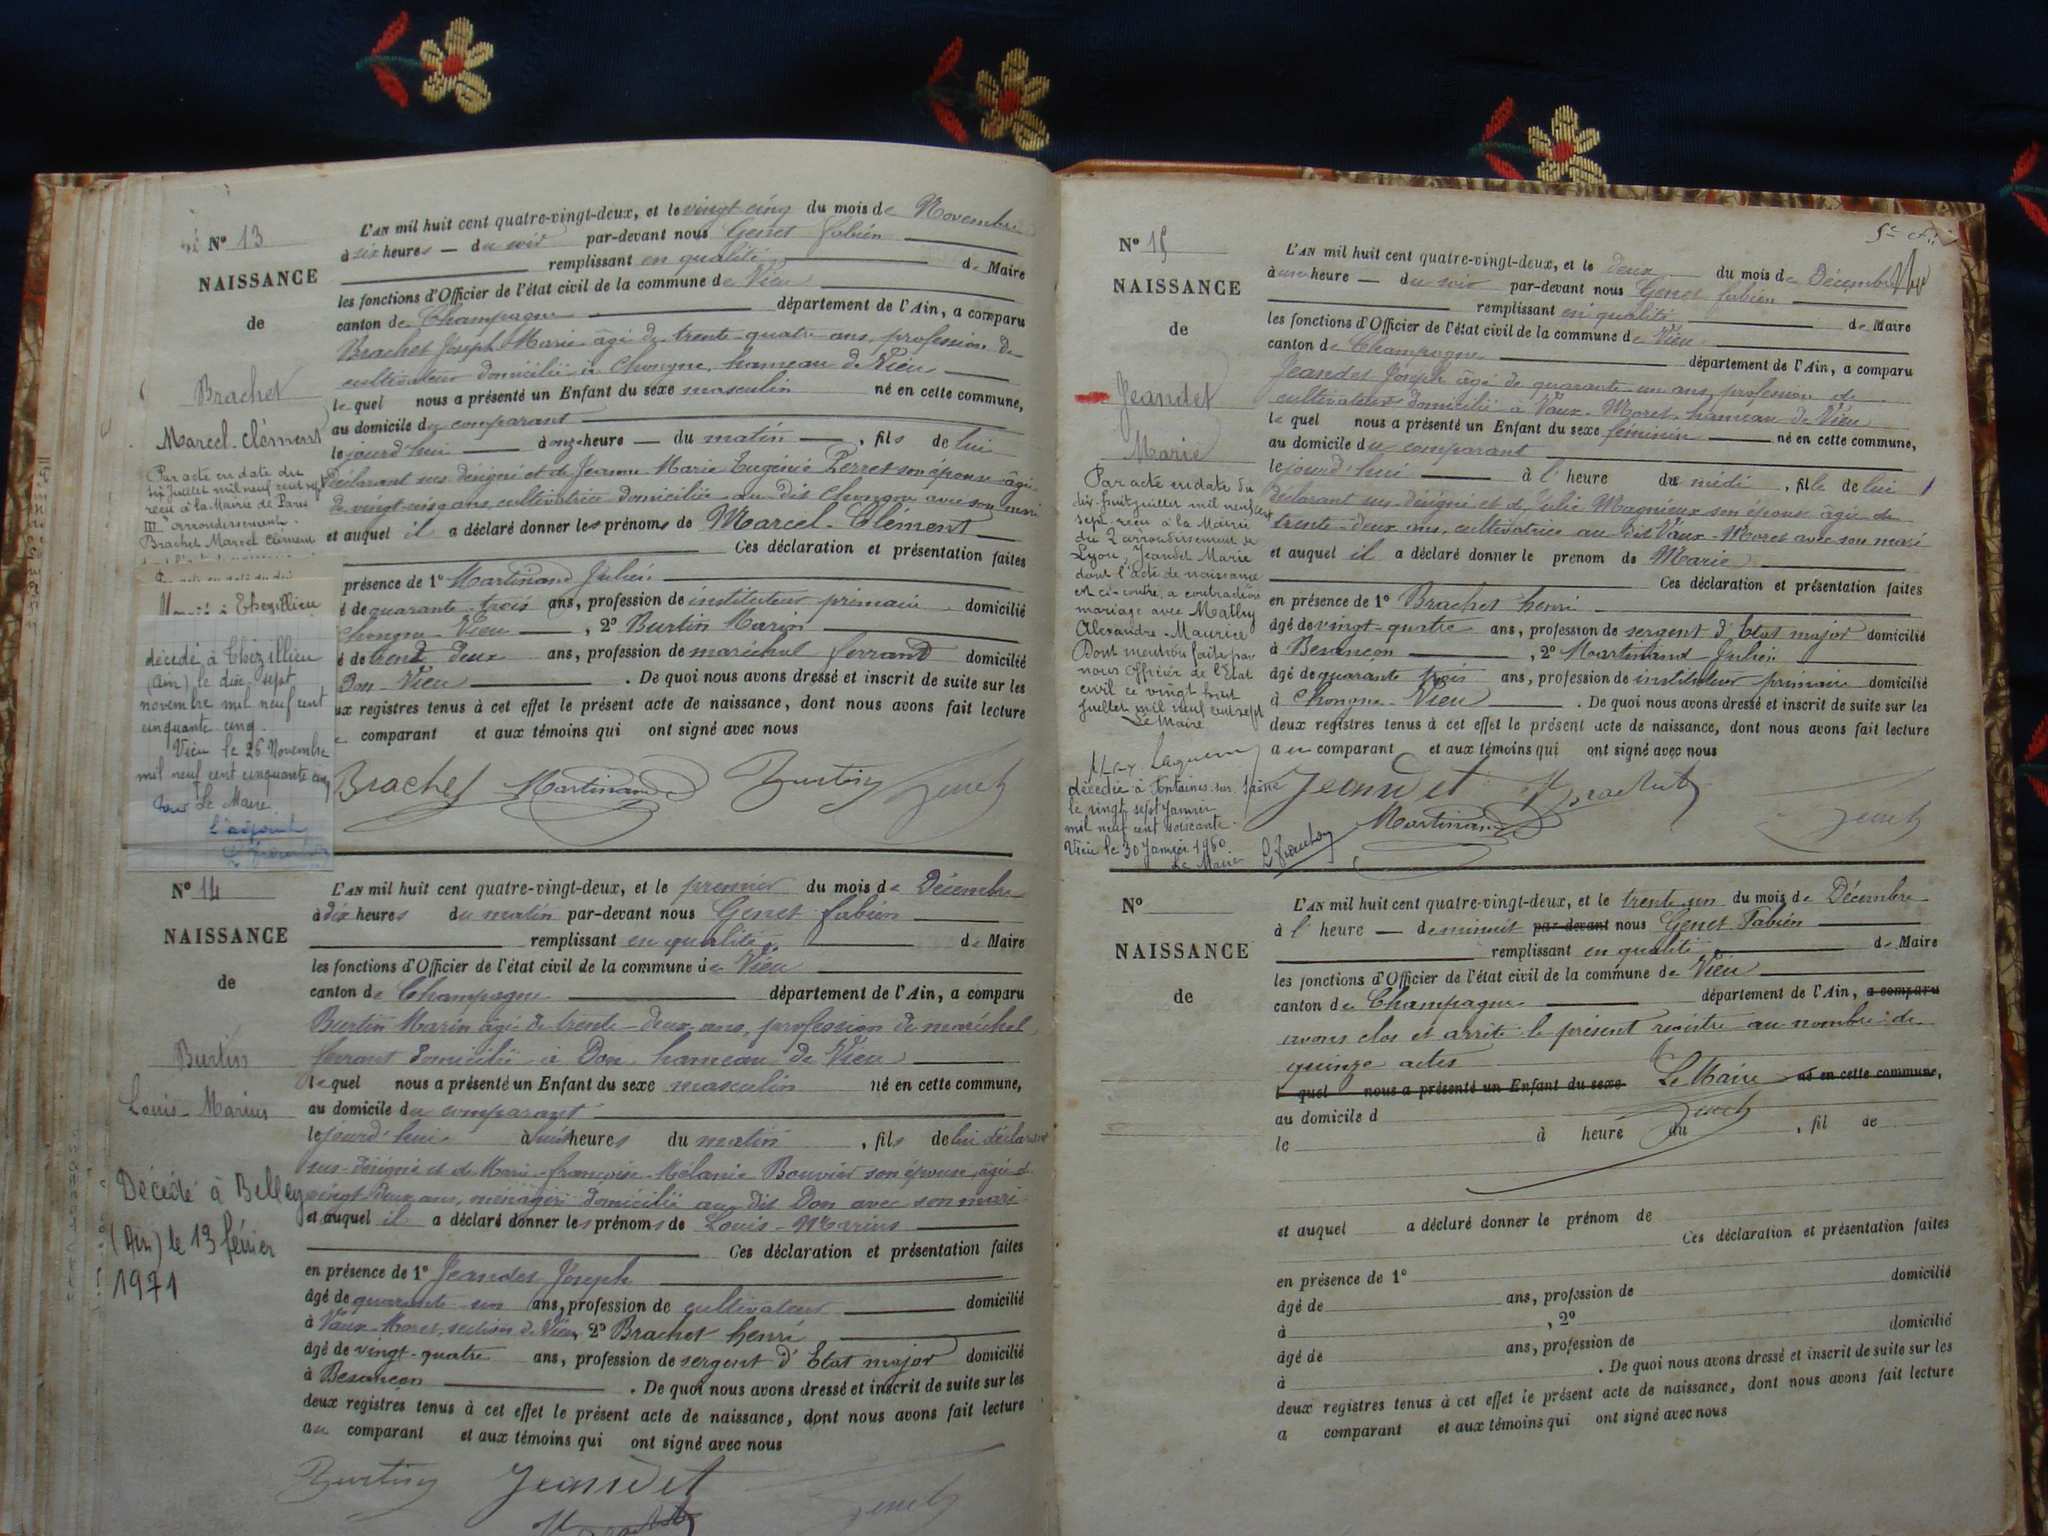 N° 13
NAISSANCE
de
Brachet
Marcel-Clément
Par acte en date du
six juillet mil neuf cent sept
reçu à la Mairie de Paris
III arrondissement
Brachet Marcel Clément
L'AN mil huit cent quatre-vingt-deux, et le vingt cinq du mois de Novembre
à six heures — du soir par-devant nous Genet fabien
remplissant en qualité de Maire
les fonctions d'Officier de l'état civil de la commune de Vieu
canton de Champagne département de l'Ain, a comparu
Brachet Joseph Marie âgé de trente-quatre ans, profession de
cultivateur domicilié à Chongne, hameau de Vieu
le quel nous a présenté un Enfant du sexe masculin né en cette commune,
au domicile du comparant
le jourd'hui à onze heure — du matin, fils de lui
déclarant sus désigné et de Jeanne Marie Eugénie Perret son épouse âgée
de vingt-cinq ans cultivatrice domiciliée au dit Chongne avec son mari
et auquel il a déclaré donner les prénoms de Marcel-Clément
Ces déclaration et présentation faites
présence de 1° Martinand Julien
é de quarante-trois ans, profession de instituteur primaire domicilié
Chongne-Vieu, 2° Burtin Marin
é de trente deux ans, profession de maréchal ferrand domicilié
Don-Vieu. De quoi nous avons dressé et inscrit de suite sur les
ux registres tenus à cet effet le présent acte de naissance, dont nous avons fait lecture
comparant et aux témoins qui ont signé avec nous
à Thézillieu
décédé à Thézillieu
(Ain) le dix sept
novembre mil neuf cent
cinquante cinq.
Vieu le 26 Novembre
mil neuf cent cinquante cinq
Le Maire
l'adjoint
Brachet Martinand Burtin Genet
N° 14
NAISSANCE
de
Burtin
Louis-Marius
Décédé à Belley
(Ain) le 13 février
1971
L'AN mil huit cent quatre-vingt-deux, et le premier du mois de Décembre
à dix heures du matin par-devant nous Genet fabien
remplissant en qualité de Maire
les fonctions d'Officier de l'état civil de la commune de Vieu
canton de Champagne département de l'Ain, a comparu
Burtin Marin âgé de trente-deux ans, profession de maréchal
ferrant domicilié à Don hameau de Vieu
le quel nous a présenté un Enfant du sexe masculin né en cette commune,
au domicile du comparant
le jourd'hui à huit heures du matin, fils de lui déclarant
sus-désigné et de Marie-françoise-Mélanie Bouvier son épouse, âgée de
vingt deux ans, ménagère domiciliée au dit Don avec son mari
et auquel il a déclaré donner les prénoms de Louis-Marius
Ces déclaration et présentation faites
en présence de 1° Jeandet Joseph
âgé de quarante-un ans, profession de cultivateur domicilié
à Vaux-Moret, section de Vieu, 2° Brachet henri
âgé de vingt-quatre ans, profession de sergent d'Etat major domicilié
à Besançon. De quoi nous avons dressé et inscrit de suite sur les
deux registres tenus à cet effet le présent acte de naissance, dont nous avons fait lecture
au comparant et aux témoins qui ont signé avec nous
Burtin Jeandet Genet
N° 15
NAISSANCE
de
Jeandet
Marie
Par acte en date du
dix-huit juillet mil neuf cent
sept reçu à la Mairie
du 2 arrondissement de
Lyon, Jeandet Marie
dont l'acte de naissance
est ci-contre, a contracté
mariage avec Mathy
Alexandre-Maurice
Dont mention faite par
nous Officier de l'Etat
civil ce vingt huit
juillet mil neuf cent sept
Le Maire
décédée à Fontaines-sur-Saône
le vingt sept Janvier
mil neuf cent soixante.
Vieu le 30 Janvier 1960
Le Maire
L'AN mil huit cent quatre-vingt-deux, et le deux du mois de Décembre
à une heure — du soir par-devant nous Genet fabien
remplissant en qualité de Maire
les fonctions d'Officier de l'état civil de la commune de Vieu
canton de Champagne département de l'Ain, a comparu
Jeandet Joseph âgé de quarante-un ans, profession de
cultivateur domicilié à Vaux-Moret hameau de Vieu
le quel nous a présenté un Enfant du sexe féminin né en cette commune,
au domicile du comparant
le jourd'hui à l' heure du midi, fille de lui
déclarant sus-désigné et de Julie Magnieux son épouse âgée de
trente-deux ans, cultivatrice au dit Vaux-Moret avec son mari
et auquel il a déclaré donner le prenom de Marie
Ces déclaration et présentation faites
en présence de 1° Brachet henri
âgé de vingt-quatre ans, profession de sergent d'Etat major domicilié
à Besançon, 2° Martinand Julien
âgé de quarante trois ans, profession de instituteur primaire domicilié
à Chongne-Vieu. De quoi nous avons dressé et inscrit de suite sur les
deux registres tenus à cet effet le présent acte de naissance, dont nous avons fait lecture
au comparant et aux témoins qui ont signé avec nous
Jeandet H Brachet
Martinand Genet
N°
NAISSANCE
de
L'AN mil huit cent quatre-vingt-deux, et le trente-un du mois de Décembre
à l' heure — de minuit par-devant nous Genet Fabien
remplissant en qualité de Maire
les fonctions d'Officier de l'état civil de la commune de Vieu
canton de Champagne département de l'Ain, a comparu
avons clos et arrêté le présent registre au nombre de
quinze actes
le quel nous a présenté un Enfant du sexe Le Maire né en cette commune,
au domicile d Genet
le à heure du , fil de
et auquel a déclaré donner le prénom de
Ces déclaration et présentation faites
en présence de 1° domicilié
âgé de ans, profession de
à , 2°
âgé de ans, profession de domicilié
à . De quoi nous avons dressé et inscrit de suite sur les
deux registres tenus à cet effet le présent acte de naissance, dont nous avons fait lecture
a comparant et aux témoins qui ont signé avec nous